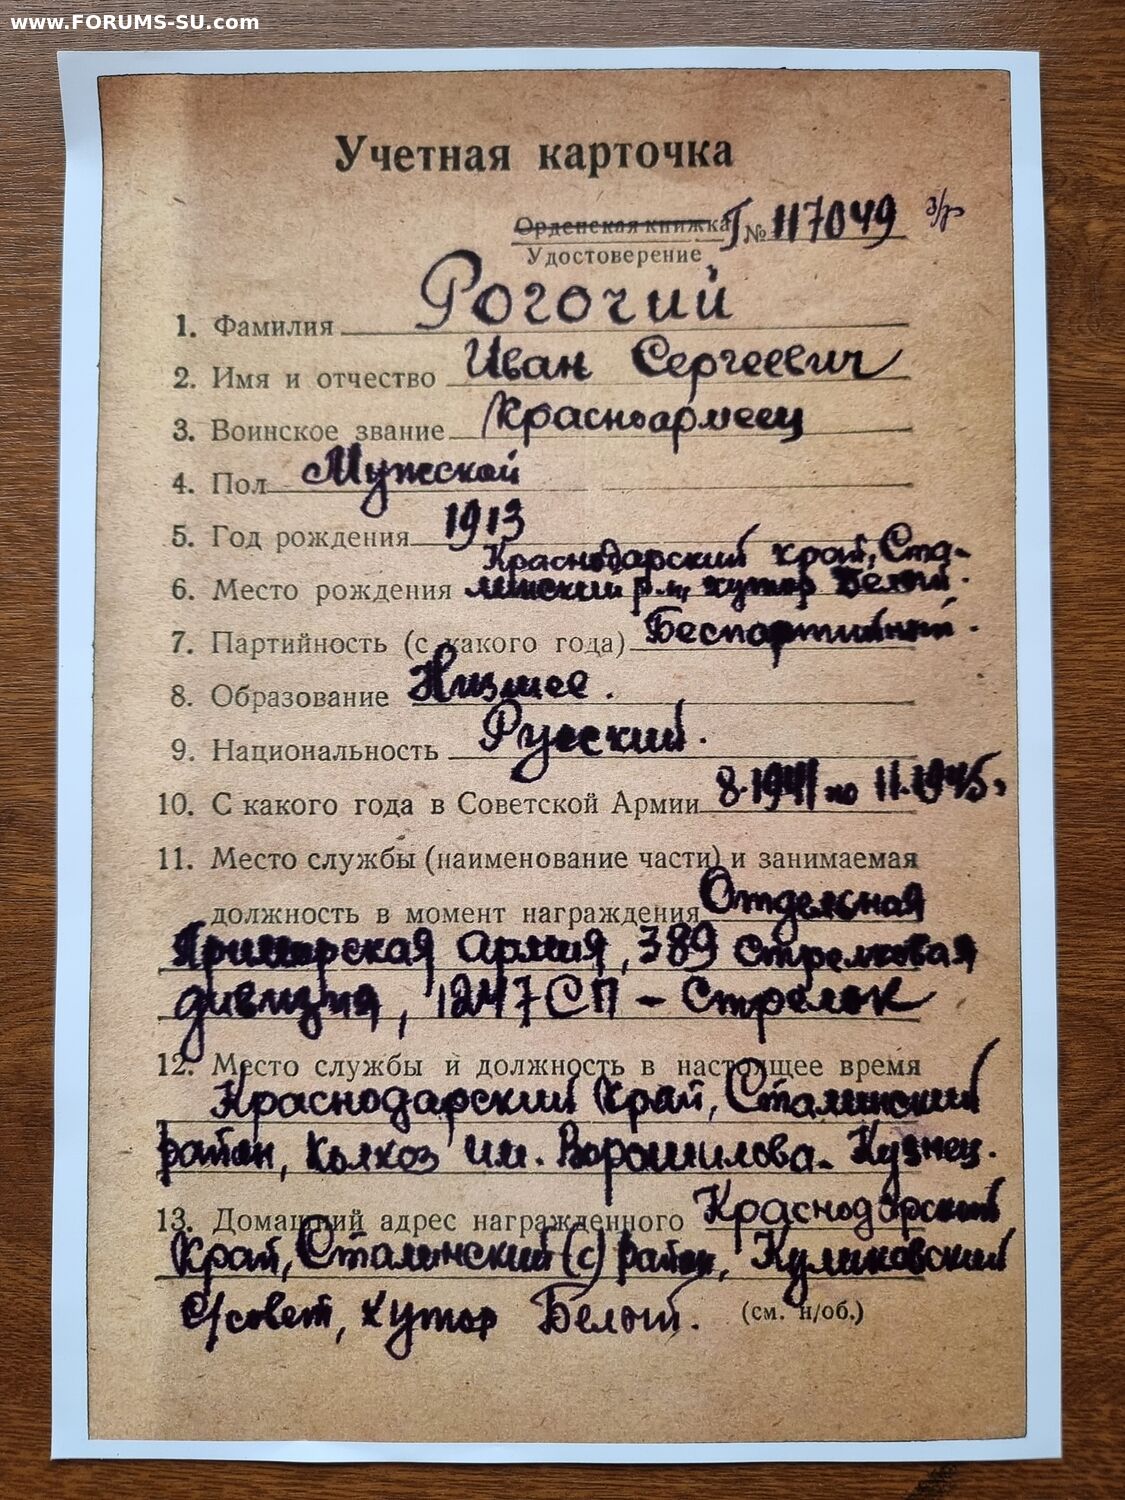 www.FORUMS-SU.com
Учетная карточка
Орденская книжка Г № 117049
Удостоверение
1. Фамилия Рогочий
2. Имя и отчество Иван Сергеевич
3. Воинское звание Красноармеец
4. Пол Мужской
5. Год рождения 1913
Краснодарский край, Ста-
6. Место рождения линский р-н, хутор Белый.
7. Партийность (с какого года) Беспартийный.
8. Образование Низшее.
9. Национальность Русский.
10. С какого года в Советской Армии 8.1941 по 11.1945г.
11. Место службы (наименование части) и занимаемая
должность в момент награждения Отдельная
Приморская армия, 389 стрелковая
дивизия, 1247 СП - Стрелок
12. Место службы и должность в настоящее время
Краснодарский край, Сталинский
район, колхоз им. Ворошилова. Кузнец.
13. Домашний адрес награжденного Краснодарский
край, Сталинский (с) район, Куликовский
с/совет, хутор Белый. (см. н/об.)